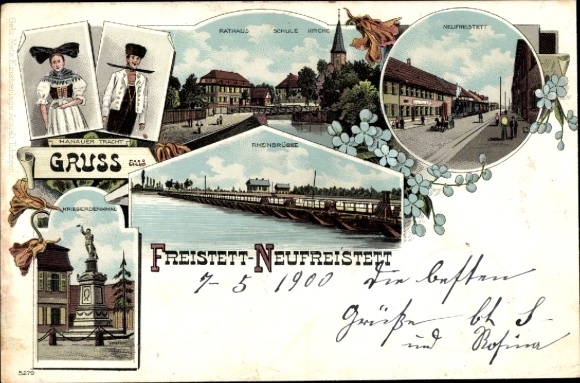 RATHAUS SCHULE KIRCHE
NEUFREISTETT
HANAUER TRACHT
GRUSS aus
RHEINBRÜCKE
KRIEGERDENKMAL
FREISTETT-NEUFREISTETT
7-5 1900 die besten
Grüße
und Rosina
5279